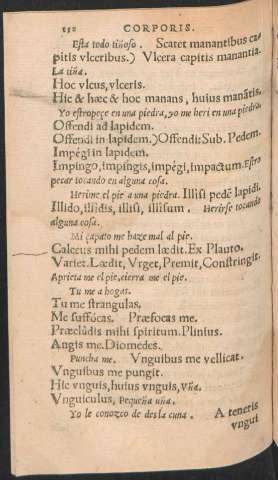 152 CORPORIS.
Esta todo tiñoso. Scatet manantibus ca-
pitis vlceribus.) Vlcera capitis manantia.
La tiña.
Hoc vlcus, vlceris.
Hic & hæc & hoc manans, huius manãtis.
Yo estropeçe en una piedra, yo me heri en una piedra
Offendi ad lapidem.
Offendi in lapidem.) Offendi: Sub. Pedem.
Impẽgi in lapidem.
Impingo, impingis, impẽgi, impactum. Estro
peçar tocando en alguna cosa.
Herime el pie a una piedra. Illisi pedẽ lapidi.
Illido, illidis, illisi, illisum. Herirse tocando
alguna cosa.
Mi çapato me haze mal al pie.
Calceus mihi pedem lædit. Ex Plauto.
Variet. Lædit, Vrget, Premit, Constringit.
Aprieta me el pie, cierra me el pie.
Tu me ahogas.
Tu me strangulas.
Me suffócas. Præfocas me.
Præclûdis mihi spiritum. Plinius.
Angis me. Diomedes.
Puncha me. Vnguibus me vellicat.
Vnguibus me pungit.
Hic vnguis, huius vnguis, vña.
Vnguiculus, Pequeña uña.
Yo le conozco de desla cuna. A teneris
vngui